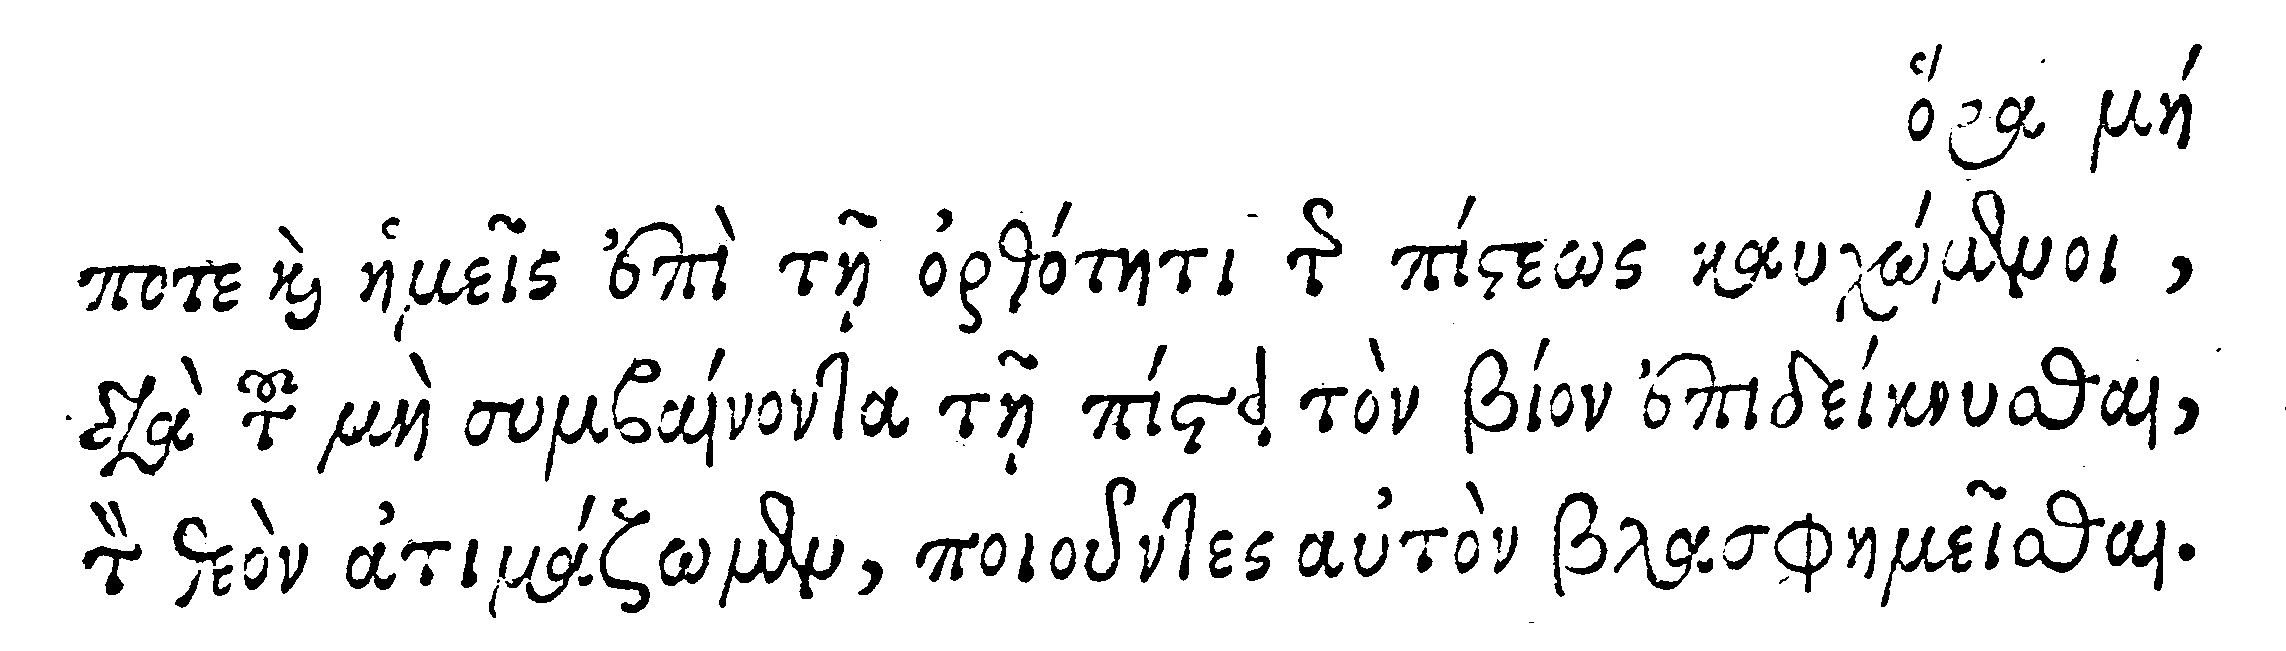 ὅρα μή
ποτε καὶ ἡμεῖς ἐπὶ τῇ ὀρθότητι τῆς πίστεως καυχώμενοι,
διὰ τοῦ μὴ συμβαίνοντα τῇ πίστει τὸν βίον ἐπιδείκνυσθαι,
τὸν θεὸν ἀτιμάζωμεν, ποιοῦντες αὐτὸν βλασφημεῖσθαι.